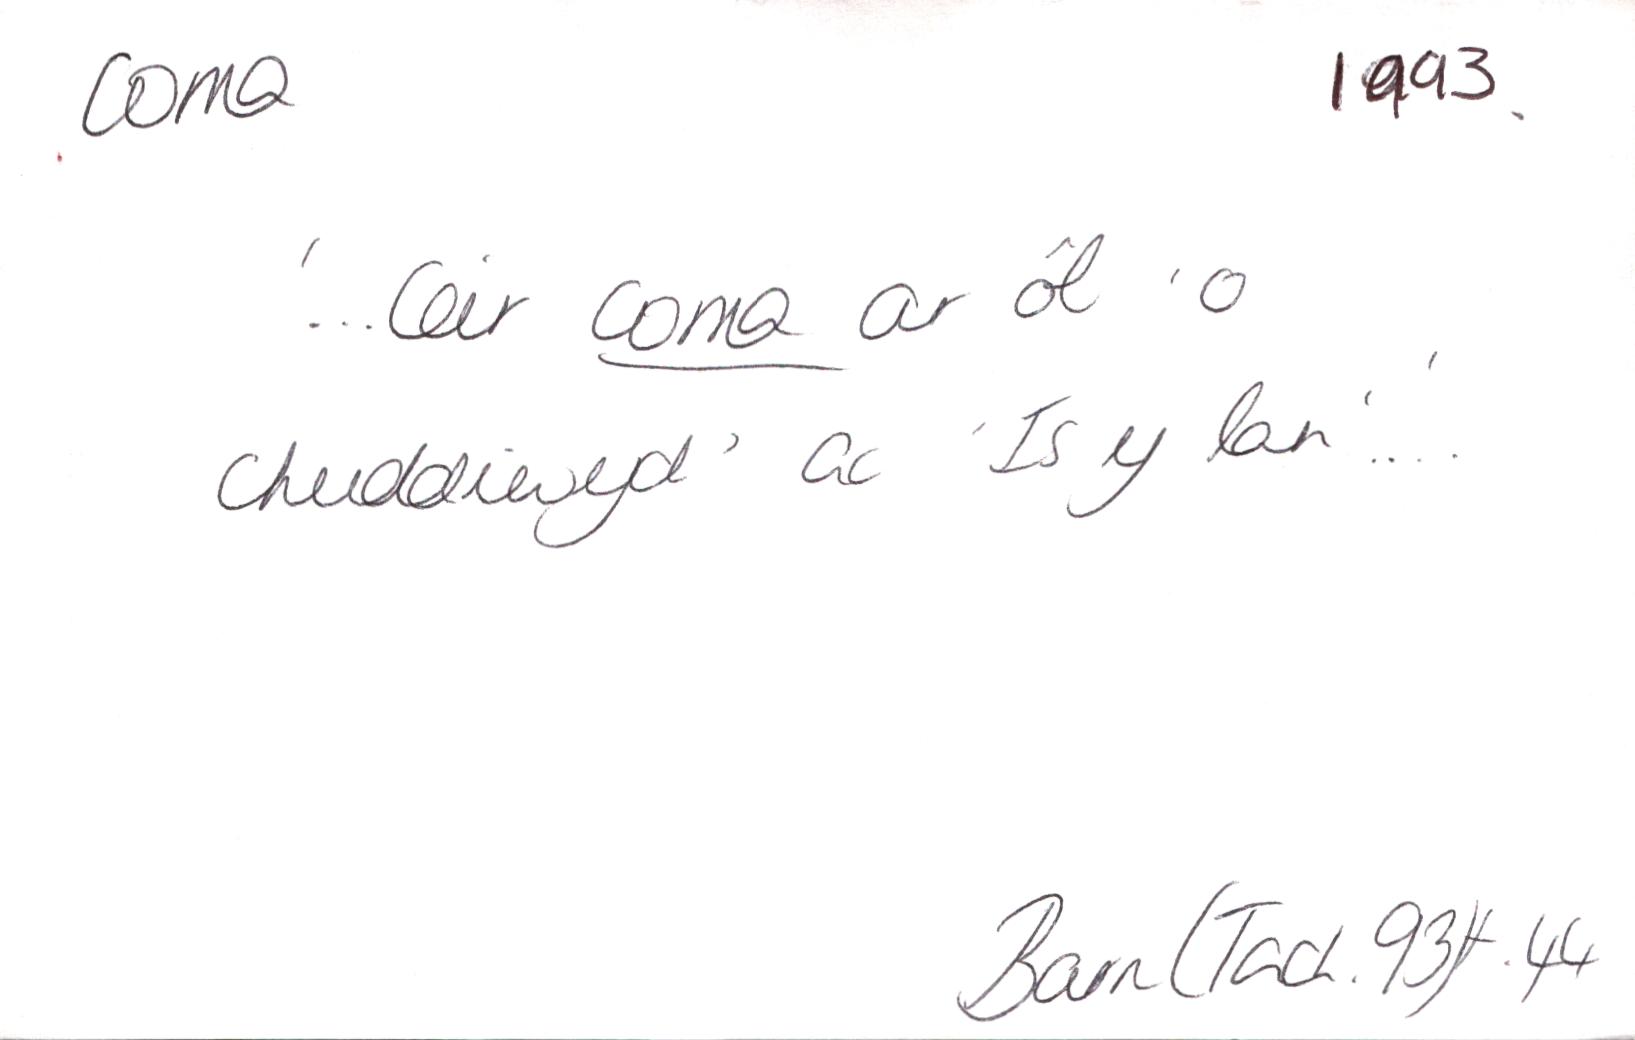 coma 1993.
'...Ceir coma ar ôl 'o
chuddiwyd' ac 'Is y lan'....'
Barn (Tach. 93) t. 44